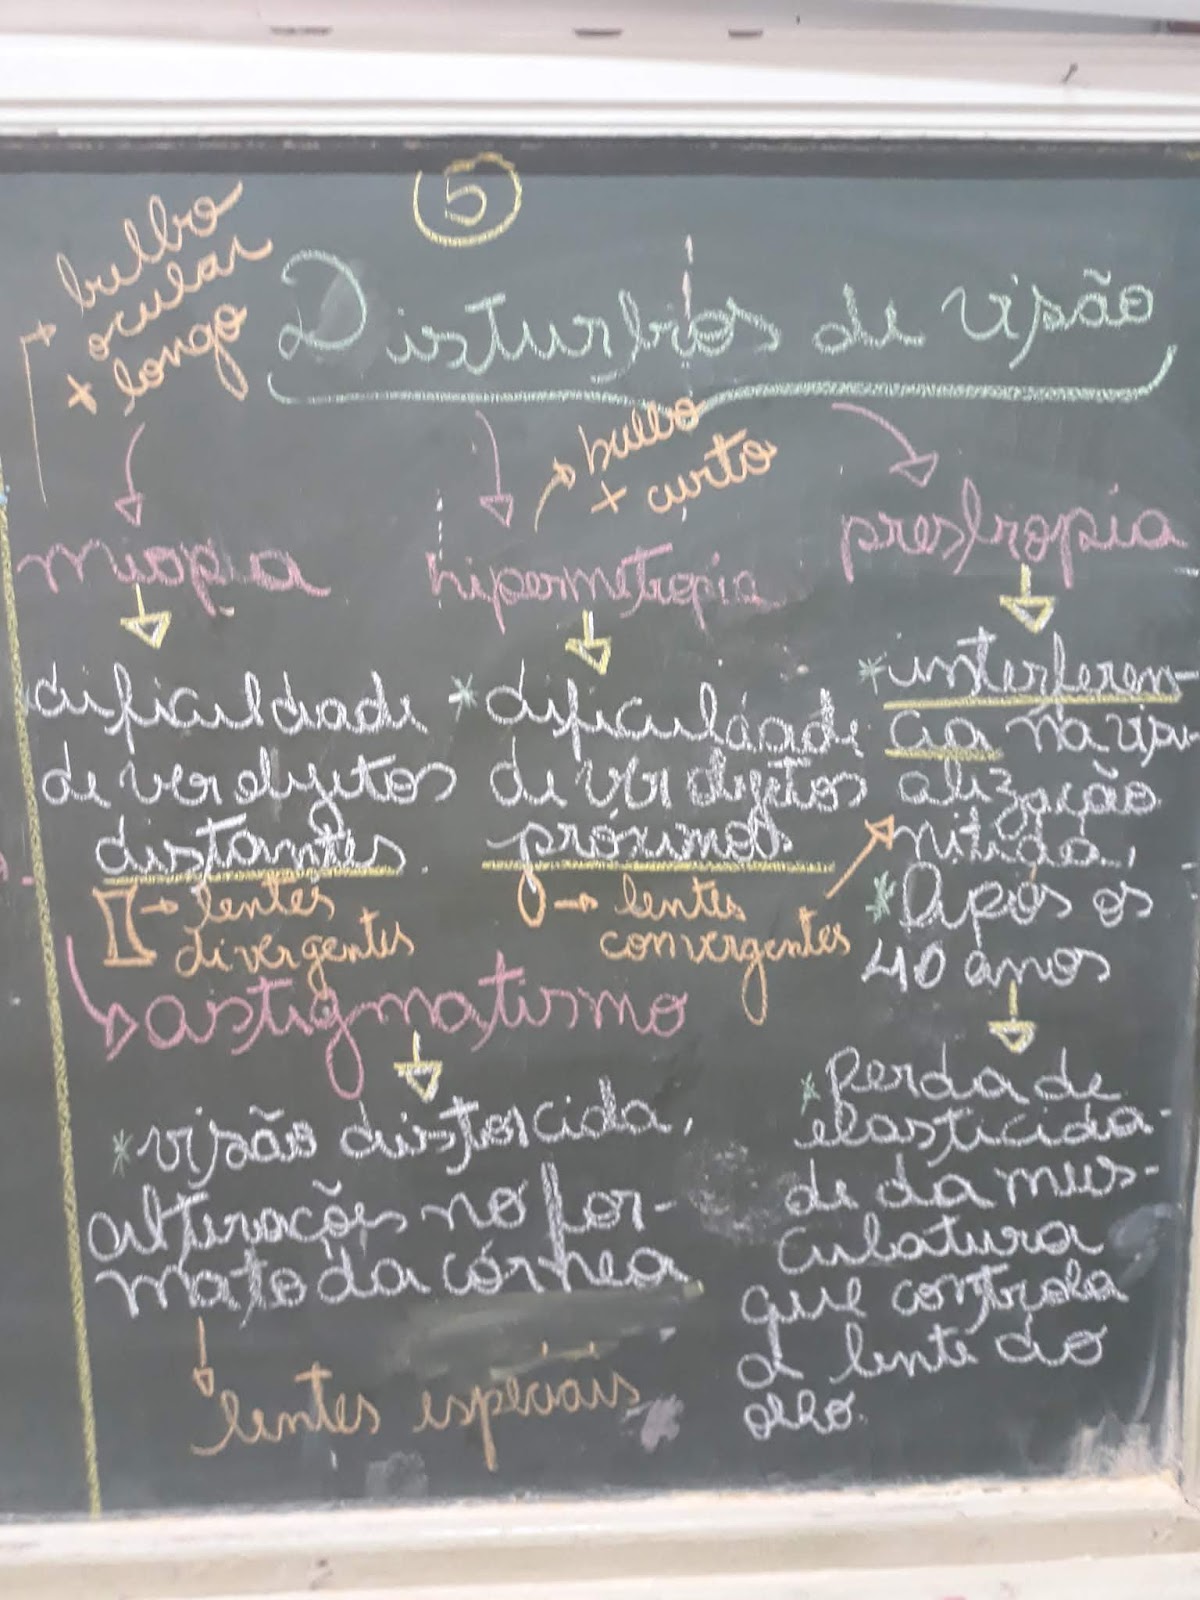 5
Disturbios de visão
bulbo
ocular
+ longo
miopia
dificuldade
de ver objetos
distantes.
lentes
divergentes
bulbo
+ curto
hipermetropia
* dificuldade
de ver objetos
próximos
lentes
convergentes
prestropia
* interferen-
cia na visu-
alização
nítida,
* Após os
40 anos
* perda de
elasticida-
de da mus-
culatura
que controla
a lente do
olho.
astigmatismo
* visão distorcida,
alterações no for-
mato da córnea
lentes especiais